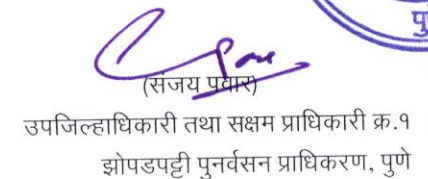 पु
(संजय पवार)
उपजिल्हाधिकारी तथा सक्षम प्राधिकारी क्र.१
झोपडपट्टी पुनर्वसन प्राधिकरण, पुणे